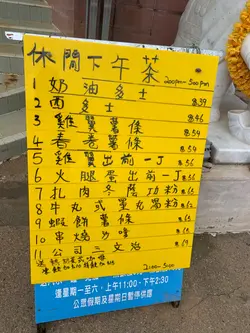 休閒下午茶
2:00pm-5:00pm
1 奶油多士 $.39
2 西多士
3 雞翼薯條 $.46
4 春卷薯條 $.54
5 雞翼出前一丁 $.56
6 火腿蛋出前一丁 $.56
7 扎肉冬陰功粉 $.65
8 牛丸或墨丸湯粉 $.65
9 蝦餅薯條 $.65
10 串燒
11 公司三文治 $.65
2:00pm-5:00
逢星期一至六，上午11:00 - 下午2:30
公眾假期及星期日暫停供應